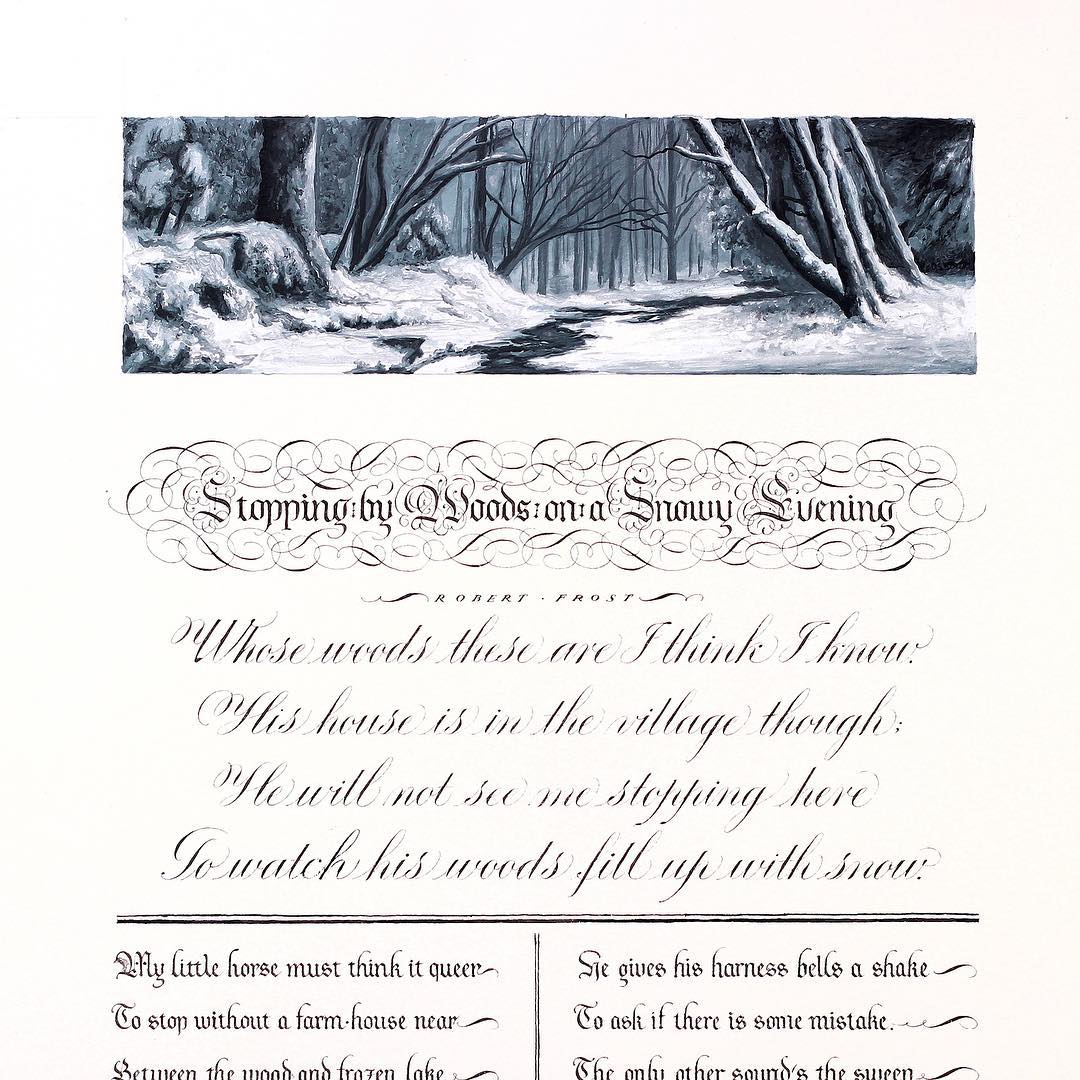 Stopping:by Woods:on:a Snowy Evening
ROBERT · FROST
Whose woods these are I think I know.
His house is in the village though;
He will not see me stopping here
To watch his woods fill up with snow.
My little horse must think it queer
To stop without a farm-house near
Between the wood and frozen lake
He gives his harness bells a shake
To ask if there is some mistake.
The only other sound's the sweep